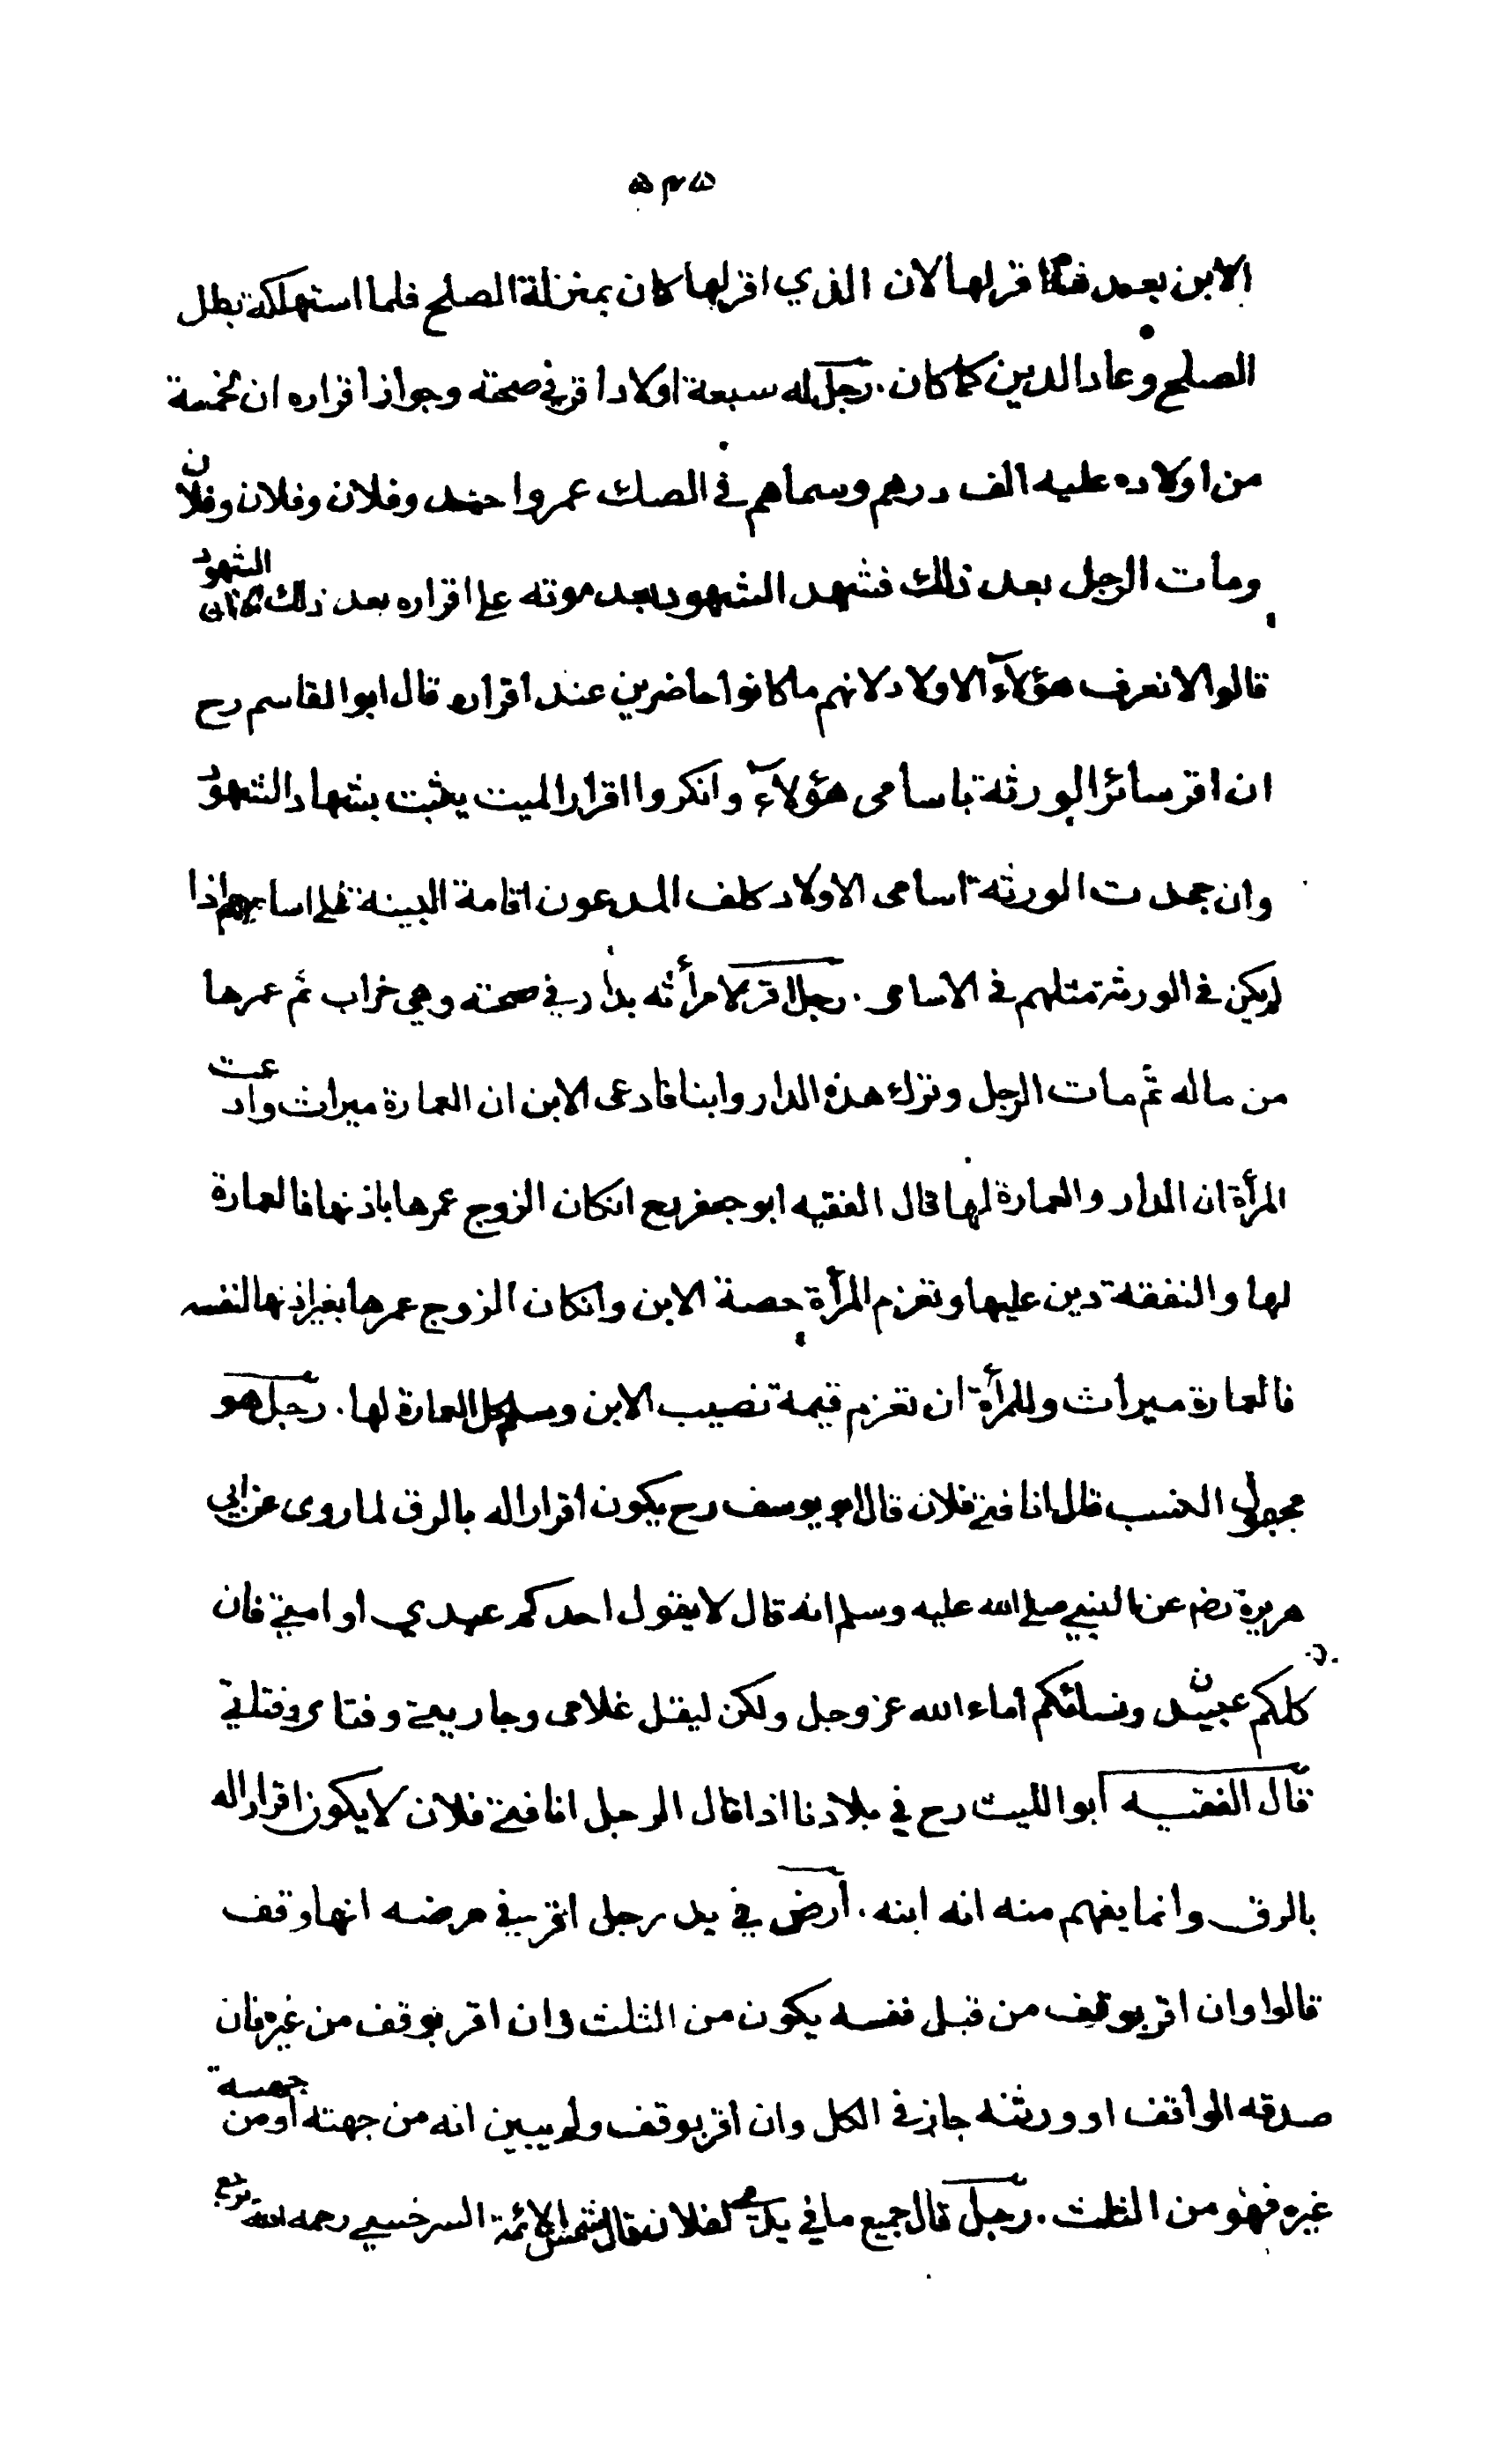 الابن بعد ما اقر لها لان الذي اقر لها كان بمنزلة الصلح فلما استهلكه بطل
الصلح وعاد الدين كما كان . رجل له سبعة اولاد اقر في صحته وجواز اقراره ان لخمسة
من اولاده عليه الف درهم وسماهم في الصك عمروا حمد وفلان وفلان وفلان
ومات الرجل بعد ذلك فشهد الشهود بعد موته على اقراره بعد ذلك الشهود
قالوا لا نعرف هؤلآء الاولاد لانهم ما كانوا حاضرين عند اقراره قال ابو القاسم رح
ان اقر سائر الورثة باسامى هؤلآء وانكروا اقرار الميت يثبت بشهاد الشهود
وان جحدت الورثة اسامى الاولاد كلف المدعون اقامة البينة على اساميهم اذا
لم يكن في الورثة مثلهم في الاسامى . رجل اقر لامرأته بدار في صحته وهي خراب ثم عمرها
من ماله ثم مات الرجل وترك هذه الدار وابنا فادعى الابن ان العمارة ميراث وادعت
المرأة ان الدار والعمارة لها قال الفقيه ابو جعفر رح انكان الزوج عمرها باذنها فالعمارة
لها والنفقة دين عليها وتغرم المرأة حصة الابن وانكان الزوج عمرها بغير اذنها لنفسه
فالعمارة ميراث وللمرأة ان تغرم قيمة نصيب الابن وسلم كل العمارة لها . رجل هو
مجهول النسب قال انا فتى فلان قال ابو يوسف رح يكون اقرارا له بالرق لما روى عن ابي
هريرة رضـ عن النبي صلى الله عليه وسلم انه قال لا يقول احدكم عبدي او امتي فان
كلكم عبيد ونسائكم اماء الله عز وجل ولكن ليقل غلامى وجاريتي وفتاى وفتاتي
قال الفقيه ابو الليث رح في بلادنا اذا قال الرجل انا فتى فلان لا يكون اقرارا له
بالرق وانما يفهم منه انه ابنه . ارض في يد رجل اقر في مرضه انها وقف
قالوا وان اقر بوقف من قبل نفسه يكون من الثلث وان اقر بوقف من غيره فان
صدقه الواقف او ورثته جاز في الكل وان اقر بوقف ولم يبين انه من جهته او من جهة
غيره فهو من الثلث . رجل قال جميع ما في يدي لفلان قال شمس الائمة السرخسي رحمه الله